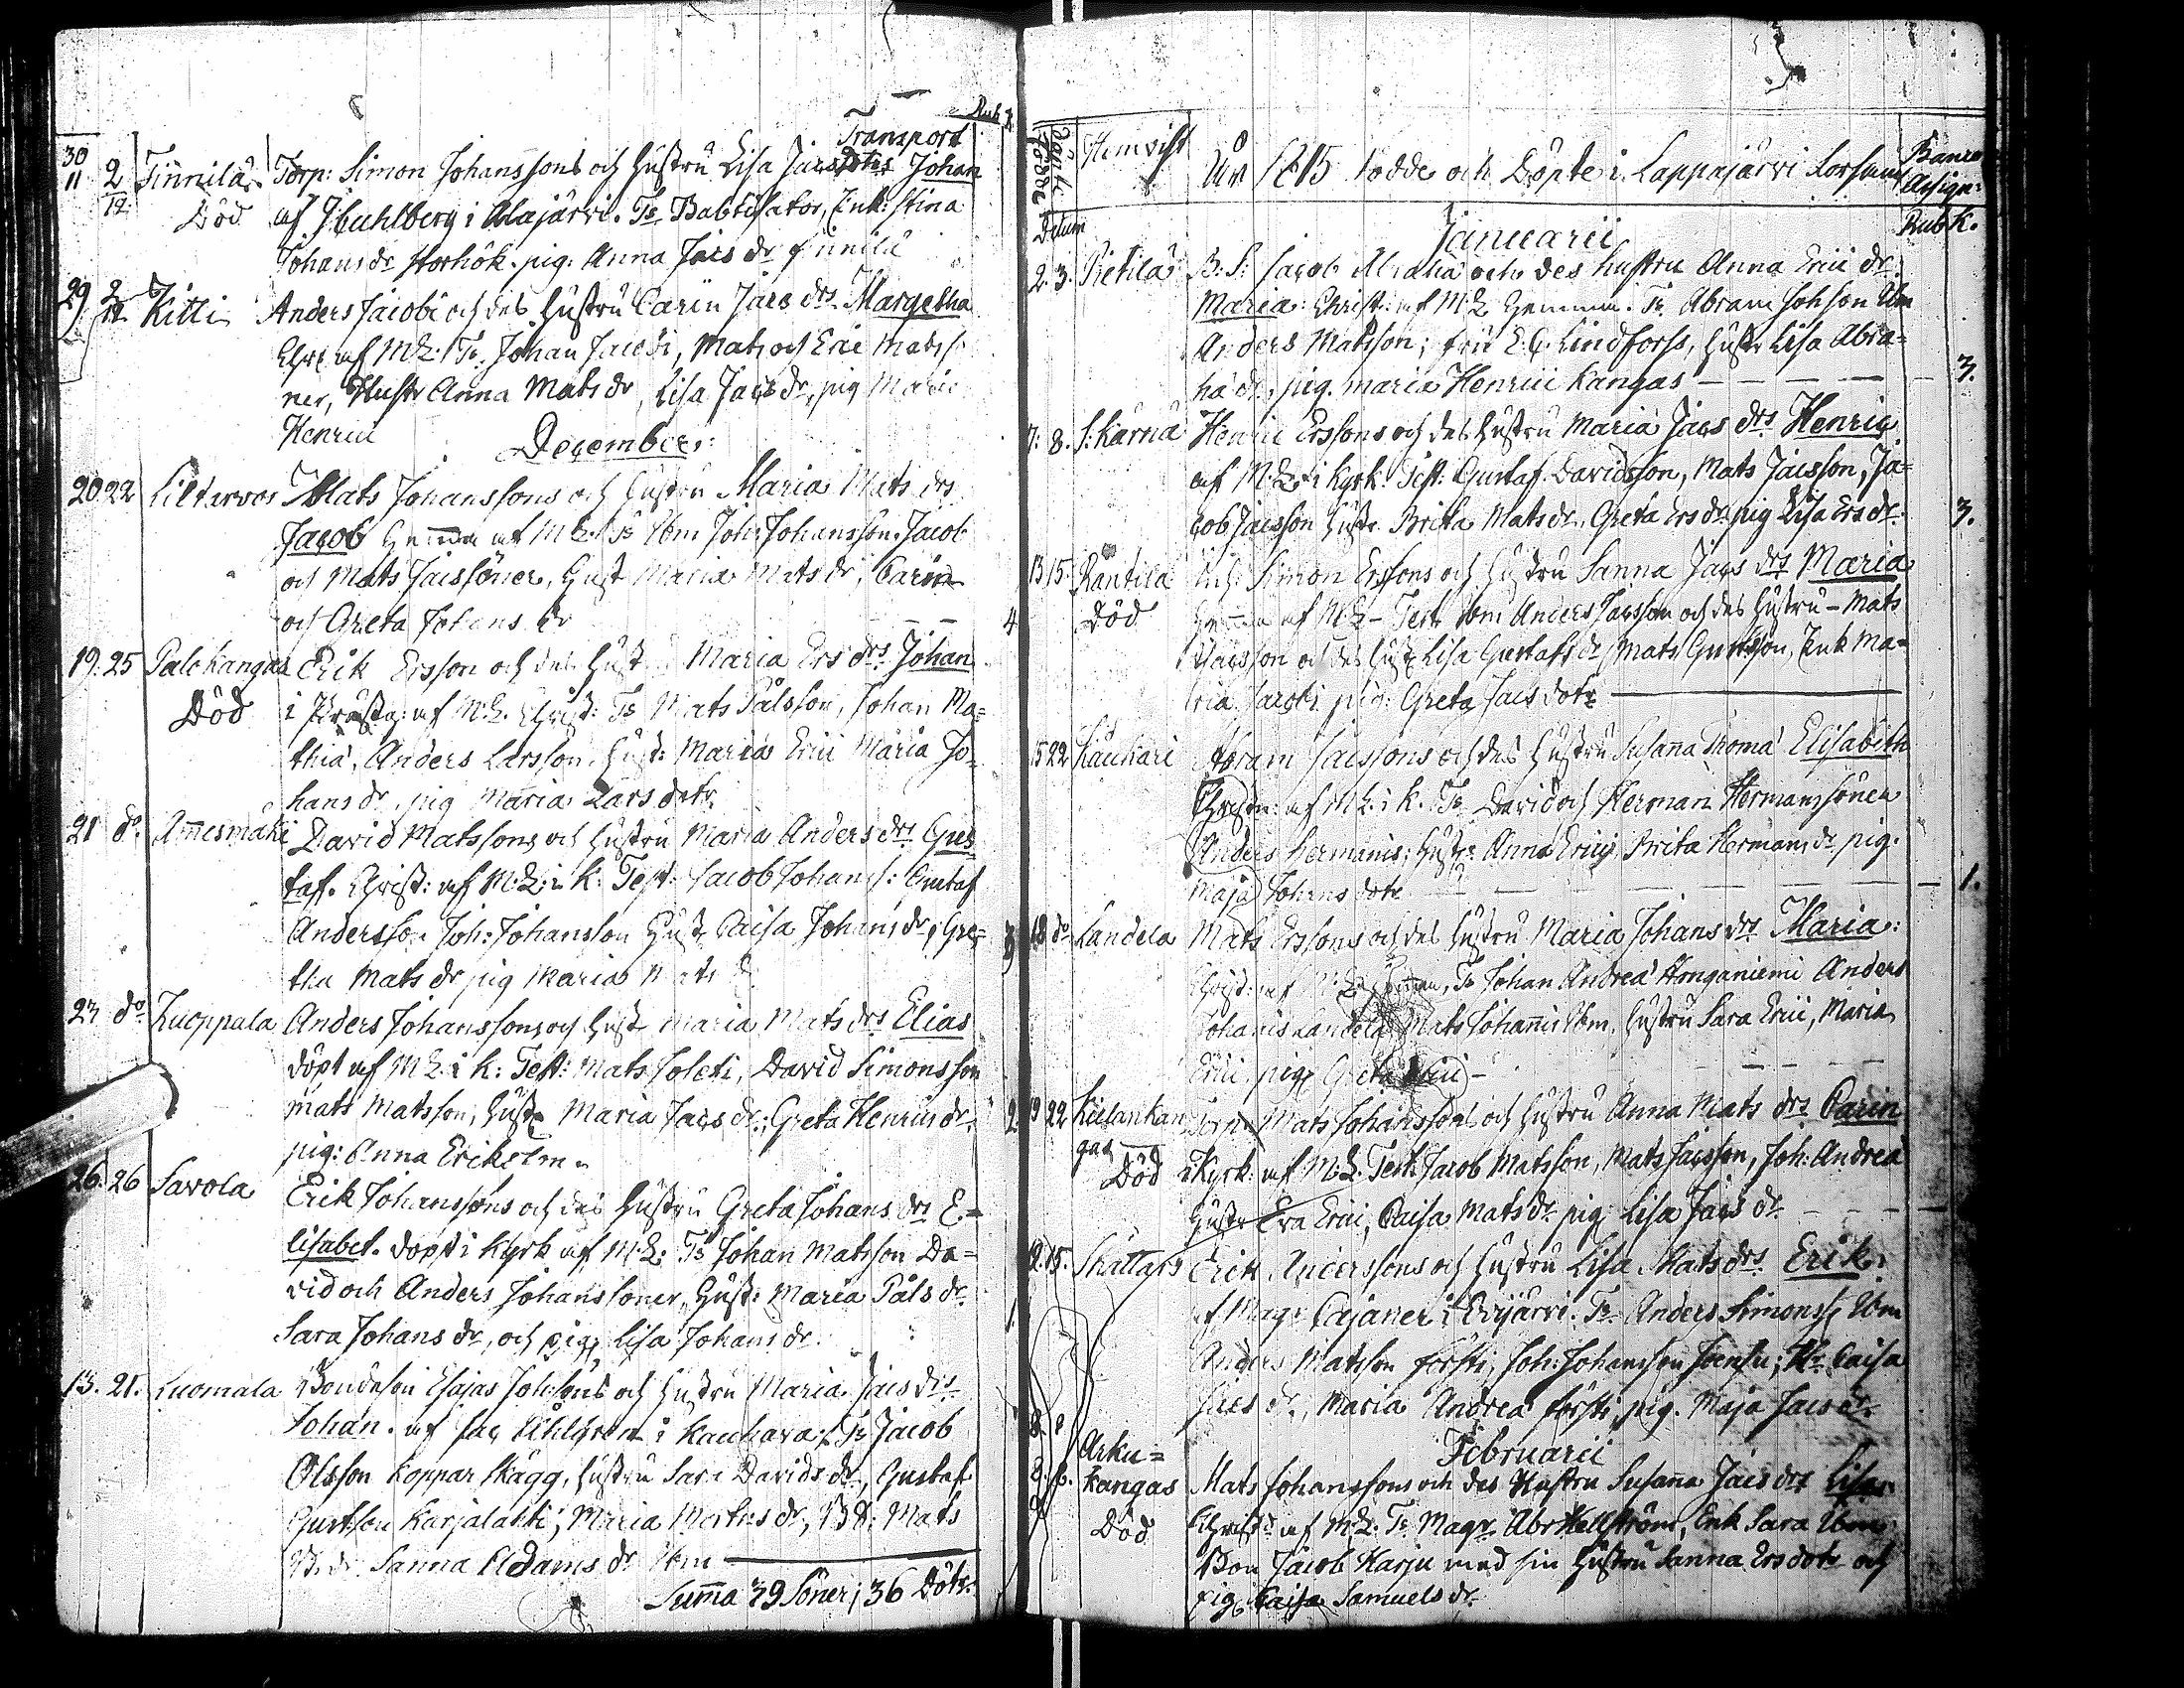 Transport
Rub k
30/11 2/12 Finnilä Torp: Simon Johanssons och hustru Lisa Jacs dotrs Johan
Död af J Buhlberg i Alajärvi. Ts Babtisator, Enk: Stina
Johans dr Storhök. pig: Anna Jacs dr Finnilä
29 2/12 Kitti Anders Jacobi och des hustru Carin Jacs drs Margetha
Chr: af M:L: Ts Johan Jacobi, Mats och Eric Mats s:
ner, Hustr Anna Mats dr, Lisa Jacs dr, pig Maria
Henrici
December:
20. 22 Mats Johanssons och hustru Maria Mats drs
Jacob Hemma af M L: Ts Ibm Joh: Johansson, Jacob
och Mats Jacssöner, Hust Maria Mats dr, Carin
och Greta Johans dr 4
19. 25 Palokangas Erik Ersson och des Hust Maria Ers drs Johan
Död i Prästg: af M:L. Christ: Ts Mats Pålsson, Johan Ma=
thiæ, Anders Larsson, Hust: Maria Erici Maria Jo=
hans dr, pig Maria Lars dotr.
21 do. Ammesmäki David Matssons och hustru Maria Anders drs Gus
taf. Christ: af M:L: i K: Test: Jacob Johans s: Gustaf
Andersson Joh: Johansson Hust Caisa Johans dr, Gre=
tha Mats dr pig Maria Mats d. 3
do. Kuoppala Anders Johanssons och Hust Maria Mats drs Elias
döpt af M L. i K: Test: Mats Joleti, David Simonsson
Mats Matsson, Hustr Maria Jacs dr; Greta Henrics dr, 2
pig: Anna Erikolm.
26. 26 Savola Erik Johanssons och des hustru Greta Johans drs E=
lisabet. döpt i Kyrk af M:L: Ts Johan Matsson Da=
vid och Anders Johanssöner, Hust: Maria Påls dr
Sara Johans dr, och pig Lisa Johans dr. 1.
13. 21. Luomala Bondeson Esajas Johssons och hustru Maria Jacs drs
Johan. af Jac Ahlgren i Kauhava: Ts Jacob
Olsson Kopparskägg, hustru Sara Davids dr, Gustaf
Gustsson Karjalahti; Maria Mats dr, Mats
Sanna Adams dr Ibm
Summa 39 Söner; 36 Dötr.
Datum
Hemvist
År 1815 födde och Döpte i Lappajärvi Församl:
Banco Assign:
Rub k.
Januarii
2. 3. Pietilä B: S: Jacob Abraha och des hustru Anna Erici dr.
Maria: Christ: af M:L Hemma. Ts Abram Johson Ibm
Anders Matsson; fru E:C. Lindforss, hustr Lisa Abra=
ha dr, pig. Maria Henrici Kangas 3.
7: 8. S: Kärnä Henric Erssons och des hustru Maria Jacs drs Henric
af M:L: i Kyrk. Test: Gustaf Davidsson, Mats Jacsson, Ja=
cob Jacsson hustr Brita Mats dr, Greta Ers dr pig Lisa Ers dr 3.
13 15. Rantila Simon Erssons och hustru Sanna Jacs drs Maria
Död Hemma af M L - Test Ibm Anders Larsson och des hustru - Mats
Jacsson och des hustr Lisa Gustafs dr Mats Gustsson, Enk Ma=
ria Jacobi pig: Greta Jacs dotr
15 22 Kauhari Abram Jacssons och des hustru Susanna Thoma Elisabeth
Christ: af M L: i K. Ts David och Herman Hermanssöner
Anders Hermanis; hustr: Anna Erici, Brita Hermans dr pig.
Maja Johans dotr 1.
18 do. Kandela Mats Erssons och des hustru Maria Johans drs Maria:
Christ: af M:L Hemma, Ts Johan Andreæ Honganiemi Anders
Johannis Kandela, Mats Johannis Ibm. hustru Sara Erici, Maria
Erici, pig Greta Erici
19 22 Kielankan
gas Torp Mats Johanssons och hustru Anna Mats drs Carin
Död i Kyrk: af M:L. Test: Jacob Matsson, Mats Jacsson, Joh: Andreæ
Hustr Eva Erici, Caisa Mats dr pig Lisa Jacs dr
12. 15. Erik Anderssons och hustru Lisa Mats drs Erik:
af Magr Cajaner i Evijärvi. Ts. Anders Simonss Ibm
Anders Matsson Försti, Joh: Johansson Joensu, Hr Caisa
Jacs dr, Maria Andreæ Försti, pig. Maja Jacs dr.
Februarii
Arku=
kangas Mats Johanssons och des Hustru Susanna Jacs drs Lisa
Död Christ: af M:L. Ts Magr Abr Hellström, Enk Sara Ibm
Bon Jacob Harju med sin hustru Sanna Ers dotr och
pig Caisa Samuels dr